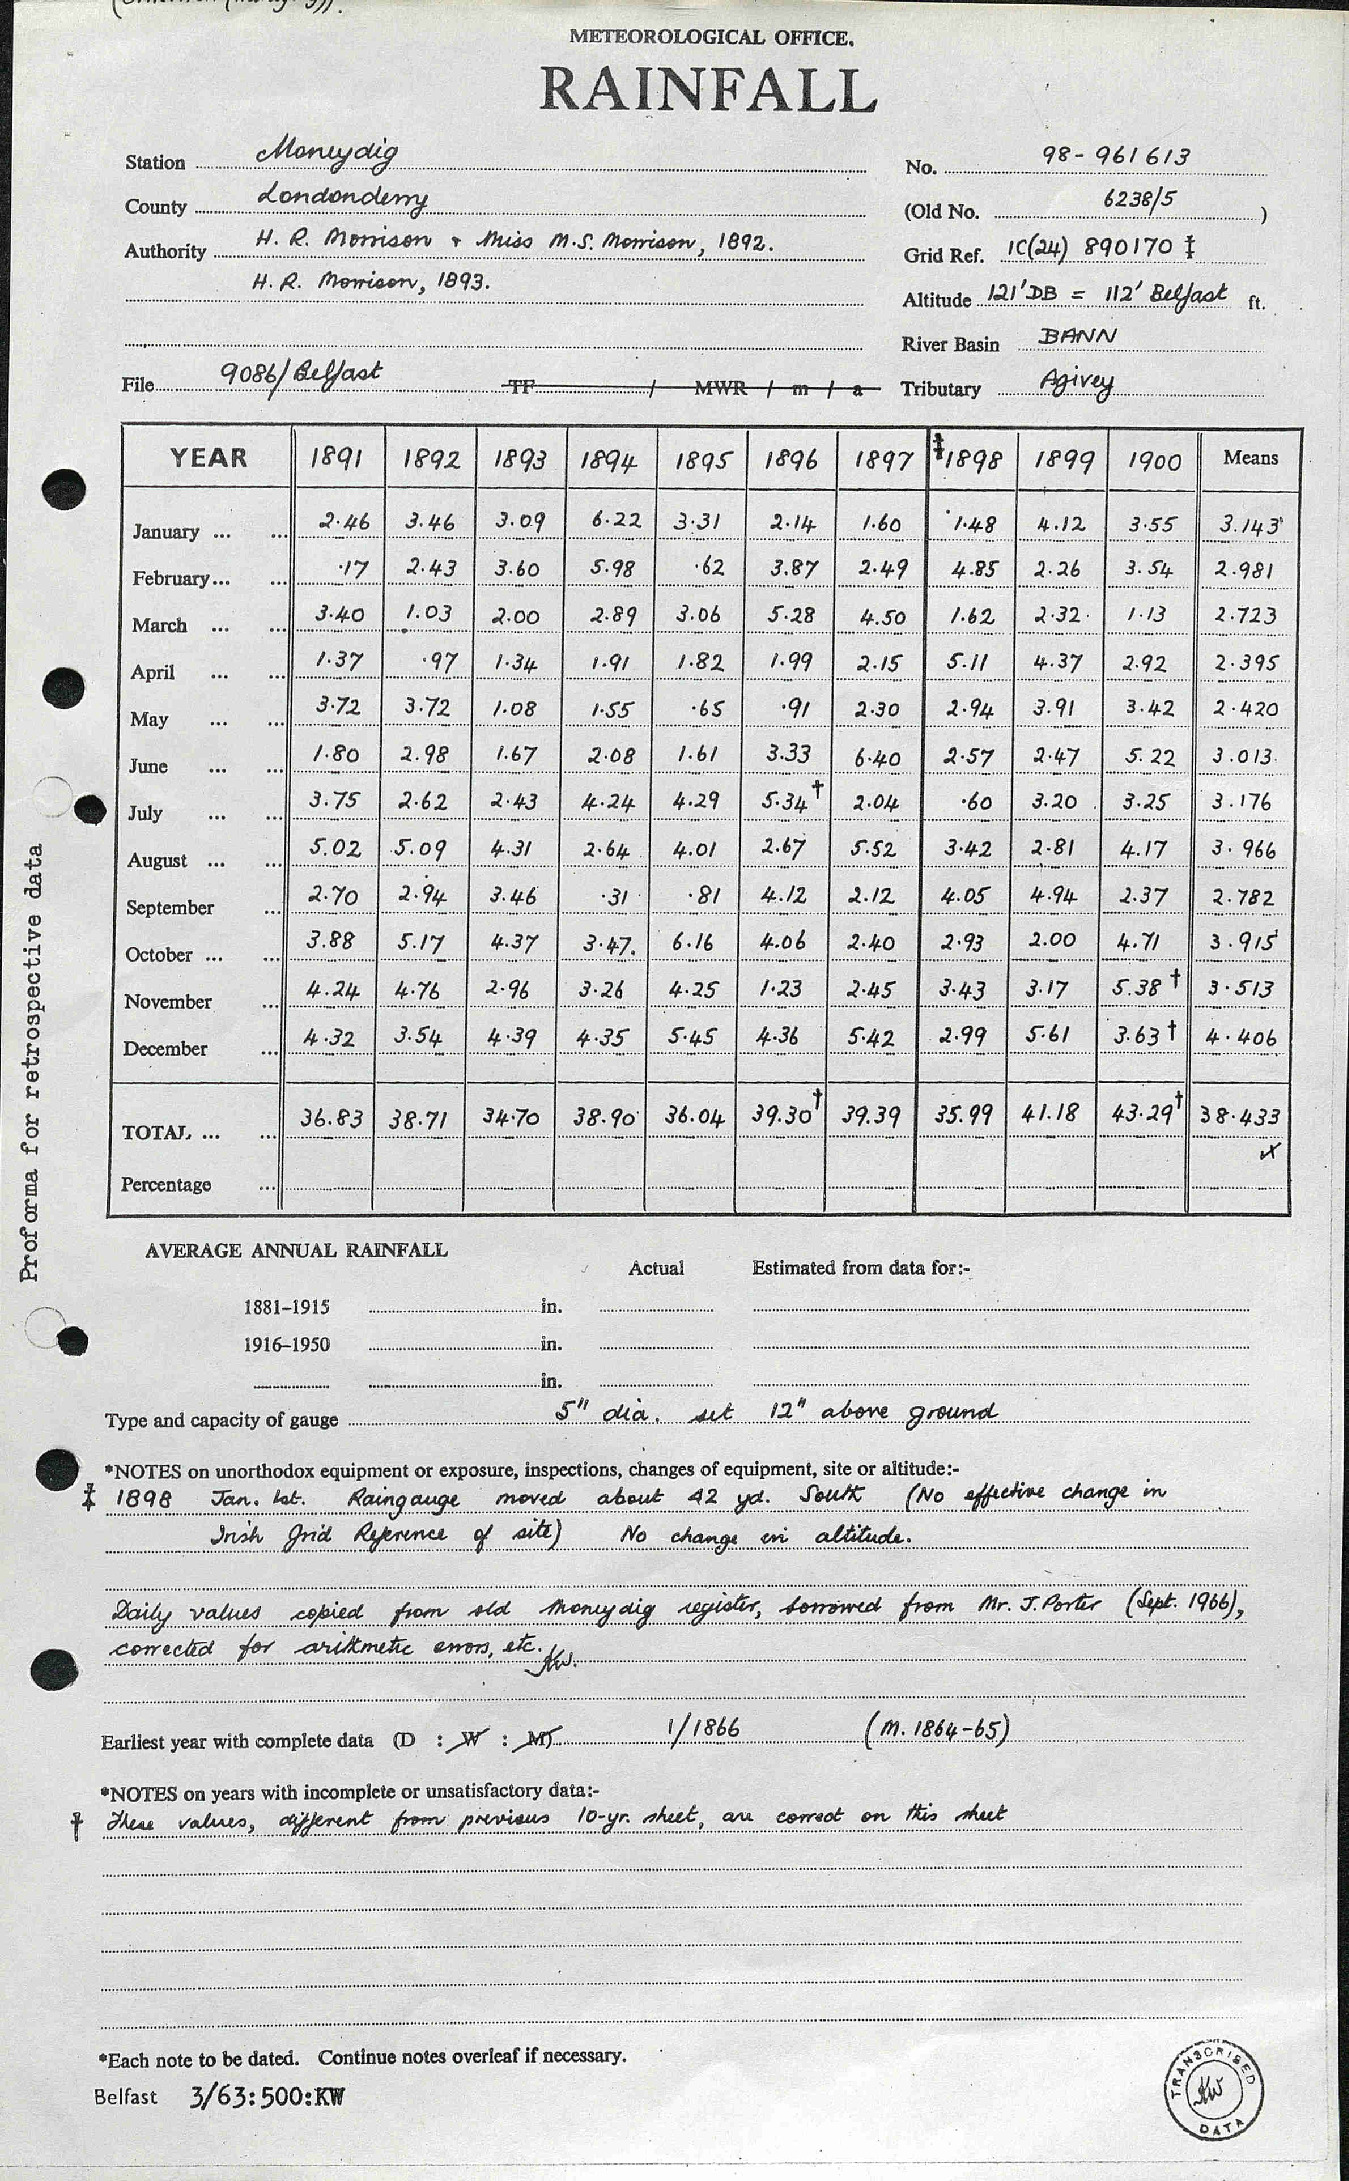 METEOROLOGICAL OFFICE.
RAINFALL
Station Moneydig No. 98-961613
County Londonderry (Old No. 6238/5 )
Authority H. R. Morrison + Miss M.S. Morrison, 1892. Grid Ref. IC(24) 890170 ‡
H. R. Morrison, 1893. Altitude 121'DB = 112' Belfast ft.
River Basin BANN
File 9086/Belfast TF / MWR / m / a Tributary Agivey
YEAR 1891 1892 1893 1894 1895 1896 1897 ‡1898 1899 1900 Means
January ... ... 2.46 3.46 3.09 6.22 3.31 2.14 1.60 1.48 4.12 3.55 3.143
February... ... .17 2.43 3.60 5.98 .62 3.87 2.49 4.85 2.26 3.54 2.981
March ... ... 3.40 1.03 2.00 2.89 3.06 5.28 4.50 1.62 2.32 1.13 2.723
April ... ... 1.37 .97 1.34 1.91 1.82 1.99 2.15 5.11 4.37 2.92 2.395
May ... ... 3.72 3.72 1.08 1.55 .65 .91 2.30 2.94 3.91 3.42 2.420
June ... ... 1.80 2.98 1.67 2.08 1.61 3.33 6.40 2.57 2.47 5.22 3.013
July ... ... 3.75 2.62 2.43 4.24 4.29 5.34† 2.04 .60 3.20 3.25 3.176
August ... ... 5.02 5.09 4.31 2.64 4.01 2.67 5.52 3.42 2.81 4.17 3.966
September ... 2.70 2.94 3.46 .31 .81 4.12 2.12 4.05 4.94 2.37 2.782
October ... ... 3.88 5.17 4.37 3.47. 6.16 4.06 2.40 2.93 2.00 4.71 3.915
November ... 4.24 4.76 2.96 3.26 4.25 1.23 2.45 3.43 3.17 5.38† 3.513
December ... 4.32 3.54 4.39 4.35 5.45 4.36 5.42 2.99 5.61 3.63† 4.406
TOTAL ... ... 36.83 38.71 34.70 38.90 36.04 39.30† 39.39 35.99 41.18 43.29† 38.433
Percentage ...
Proforma for retrospective data
AVERAGE ANNUAL RAINFALL
Actual Estimated from data for:-
1881–1915 in.
1916–1950 in.
in.
Type and capacity of gauge 5" dia. set 12" above ground
*NOTES on unorthodox equipment or exposure, inspections, changes of equipment, site or altitude:-
‡ 1898 Jan. 1st. Raingauge moved about 42 yd. South (No effective change in
Irish Grid Reference of site) No change in altitude.
Daily values copied from old Moneydig register, borrowed from Mr. J. Porter (Sept. 1966),
corrected for arithmetic errors, etc. KW.
Earliest year with complete data (D : W : M) 1/1866 (M. 1864-65)
*NOTES on years with incomplete or unsatisfactory data:-
† These values, different from previous 10-yr. sheet, are correct on this sheet
*Each note to be dated. Continue notes overleaf if necessary.
Belfast 3/63:500:KW
TRANSCRIBED
KW
DATA